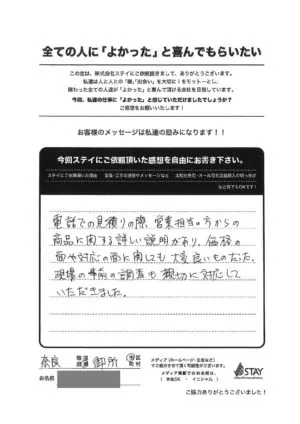 全ての人に「よかった」と喜んでもらいたい
この度は、株式会社ステイにご依頼頂きまして、ありがとうございます。
私達は人と人との「縁」「出会い」を大切に！をモットーとし、
関わった全ての人達が「よかった」と喜んで頂ける会社を目指しています。
今回、私達の仕事に「よかった」と感じていただけましたでしょうか？
ご感想をお願いいたします！
お客様のメッセージは私達の励みになります！！
今回ステイにご依頼頂いた感想を自由にお書き下さい。
ステイにご依頼頂いた理由
営業・工事の感想やメッセージなど
など何でもOKです！
電話での見積りの際、営業担当の方からの
商品に関する詳しい説明があり、価格の
面や対応の面に関しても大変良いものだった。
現場の事前の調査も親切に対応して
いただきました。
奈良
都道
府県
御所
市区
町村
お名前
メディア（ホームページ・広告など）
でご紹介させて頂く可能性がございます。
メディア掲載でのお名前は、
（ 本名OK ・ イニシャル ）
STAY
ご協力ありがとうございました！